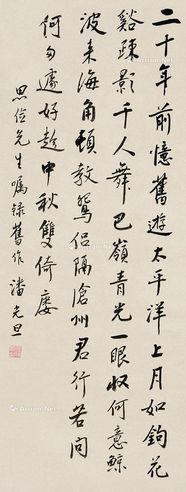 二十年前憶舊遊太平洋上月如鉤花
谿疎影千人舞巴嶺青光一眼收何意鯨
波来海角頓教鴛侣隔滄州君行若問
何匆遽好趁中秋雙倚廔
思位先生嘱録舊作 潘光旦